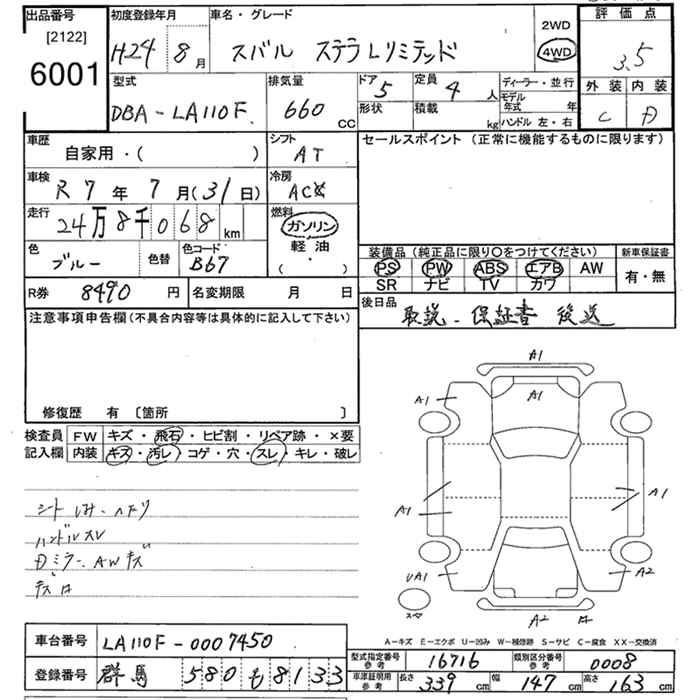 出品番号
[2122]
6001
初度登録年月
H24 8月
車名・グレード
スバル ステラLリミテッド
2WD
4WD
評価点
3.5
外装 内装
C D
型式
DBA-LA110F
排気量
660 CC
ドア 5
形状
定員 4人
積載 kg
ディーラー・並行
モデル年式 年
ハンドル 左・右
車歴
自家用・( )
シフト
AT
セールスポイント (正常に機能するものに限ります)
車検
R7年7月(31日)
冷房
AC
走行
24万8千068km
燃料
ガソリン
軽油
( ・ )
色
ブルー
色替
色コード
B67
装備品(純正品に限り〇をつけてください)
PS PW ABS エアB AW
SR ナビ TV カワ
新車保証書
有・無
R券 8490円
名変期限 月 日
後日品
取説・保証書 後送
注意事項申告欄(不具合内容等は具体的に記入して下さい)
修復歴 有 〔箇所 〕
検査員
記入欄
FW キズ・飛石・ヒビ割・リペア跡・×要
内装 キズ・汚レ・コゲ・穴・スレ・キレ・破レ
シートしみ・ヘタリ
ハンドルスレ
Dミラー、AWキズ
A1
A1
A1
A1
A1
UA1
A2
A2
スペ
A-キズ E-エクボ U-凹み W-補修跡 S-サビ C-腐食 XX-交換済
車台番号 LA110F-0007450
登録番号 群馬 580 も 8133
型式指定番号
参考
16716
類別区分番号
参考
0008
車庫証明用
参考
長さ 339cm
幅 147cm
高さ 163cm